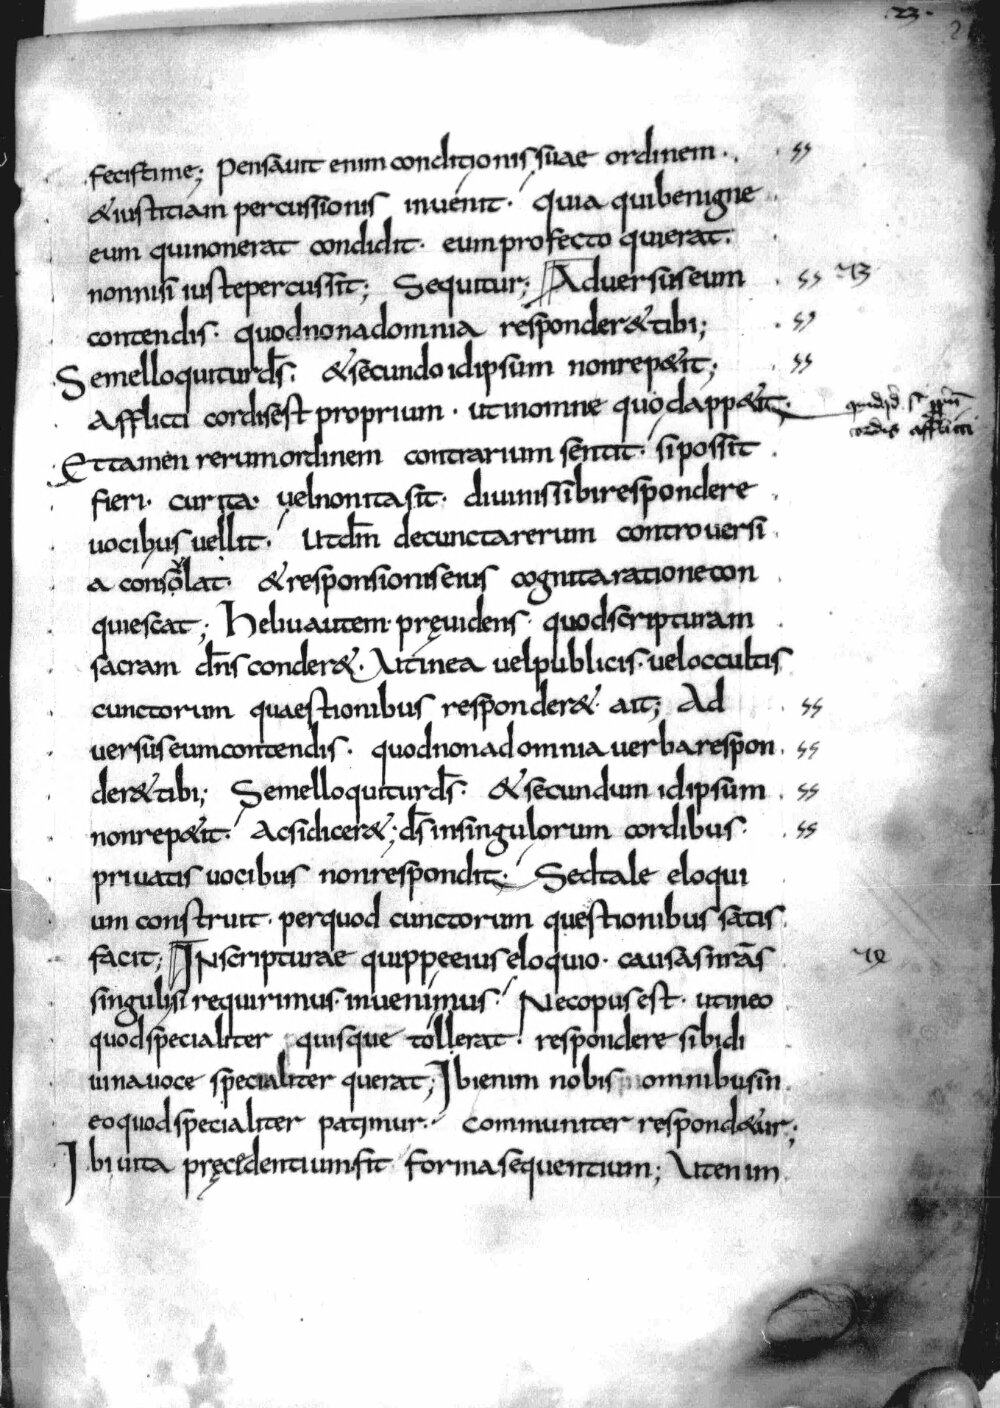 .23.
fecistime; Pensauit enim conditionis suae ordinem.
&iustitiam percussionis inuenit. quia quibenigne
eum quinonerat condidit. eumprofecto quierat.
nonnisi iustepercussit; Sequitur; Aduersuseum
contendis. quodnonadomnia responder&tibi;
Semelloquiturds. &secundo idipsum nonrep&it;
Afflicti cordisest proprium. utinomne quodapp&it.
cordis afflicti
Ettamen rerumordinem contrarium sentit. sipossit
fieri. cur ita. uelnonitasit. diuinissibirespondere
uocibus uellit. Utdm decunctarerum controuersi
a consolat. &responsioniseius cognitarationecon
quiescat; Heliuautem. pręuidens. quodscripturam
sacram dns conder&. Utinea uelpublicis. ueloccultis
cunctorum quaestionibus responder&. ait; Ad
uersuseumcontendis. quodnonadomniauerbarespon
der&tibi; Semelloquiturds. &secundum idipsum
nonrep&it. Acsidicer&; ds insingulorum cordibus.
priuatis uocibus nonrespondit. Sedtale eloqui
um construit. perquod cunctorum questionibus satis
facit; Inscripturae quippeeius eloquio. causas nras
singulisi requirimus. inuenimus. Necopusest. utineo
quodspecialiter quisque tollerat. respondere sibidi
uinauoce specialiter querat; Ibienim nobis omnibusin
eoquodspecialiter patimur. communiter respond&ur;
Ibi uita pręcedentium. fit formasequentium; Utenim